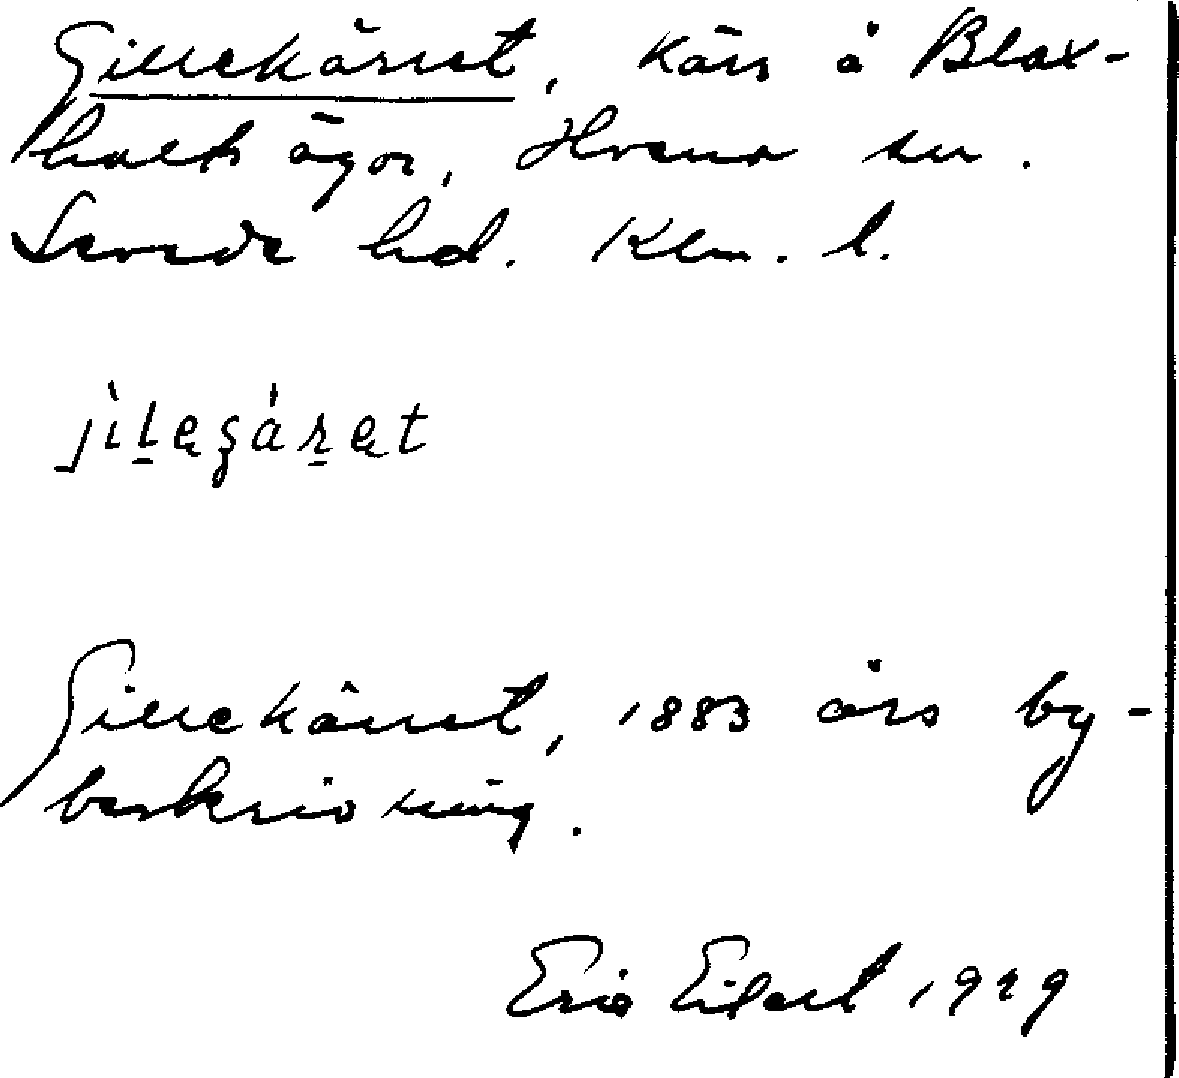 Gillekärret, kärr å Blax-
hults ägor, Hvena sn.
Sevede hd. Klm. l.
jìlegáret
Gillekärret, 1883 års by-
beskrivning.
Eric Eilert 1929